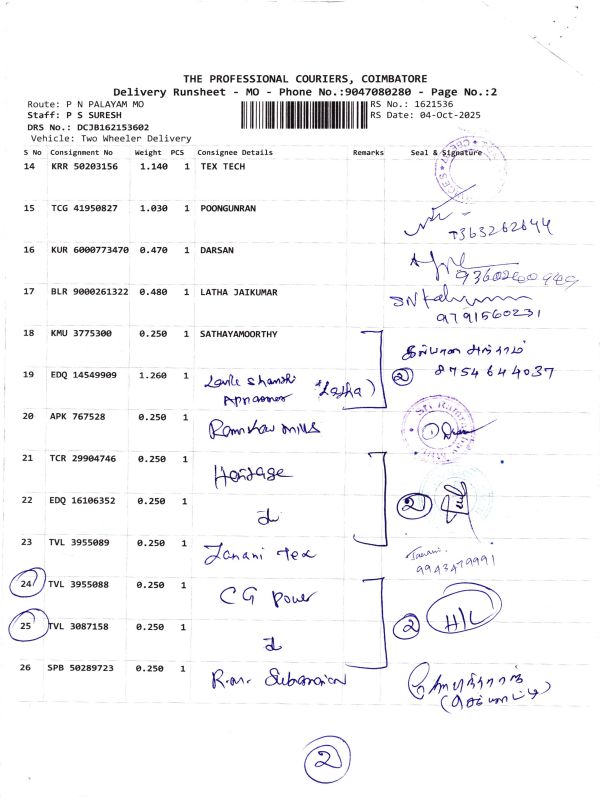 THE PROFESSIONAL COURIERS, COIMBATORE
Delivery Runsheet - MO - Phone No.:9047080280 - Page No.:2
Route: P N PALAYAM MO RS No.: 1621536
Staff: P S SURESH RS Date: 04-Oct-2025
DRS No.: DCJB162153602
Vehicle: Two Wheeler Delivery
S No Consignment No Weight PCS Consignee Details Remarks Seal & Signature
14 KRR 50203156 1.140 1 TEX TECH
15 TCG 41950827 1.030 1 POONGUNRAN
16 KUR 6000773470 0.470 1 DARSAN
17 BLR 9000261322 0.480 1 LATHA JAIKUMAR
9791560231
18 KMU 3775300 0.250 1 SATHAYAMOORTHY
19 EDQ 14549909 1.260 1 (Latha) 2 8754644037
20 APK 767528 0.250 1 mills 1
21 TCR 29904746 0.250 1 Heritage
22 EDQ 16106352 0.250 1 2
23 TVL 3955089 0.250 1 Janani Tex
9943479991
24 TVL 3955088 0.250 1 CG Power
25 TVL 3087158 0.250 1 2 H/L
26 SPB 50289723 0.250 1 R.m.
2